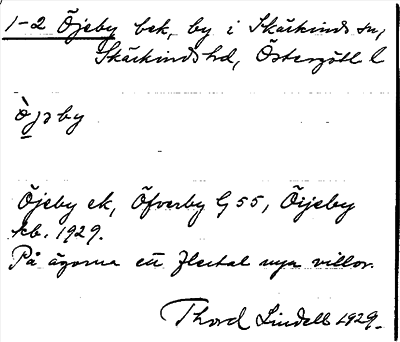 1-2 Öjeby bek, by i Skärkinds sn,
Skärkinds hd, Östergötl l
òjəby
Öjeby ek, Öfverby G 55, Öijeby
kb. 1929.
På ägorna ett flertal nya villor.
Thord Lindell 1929.